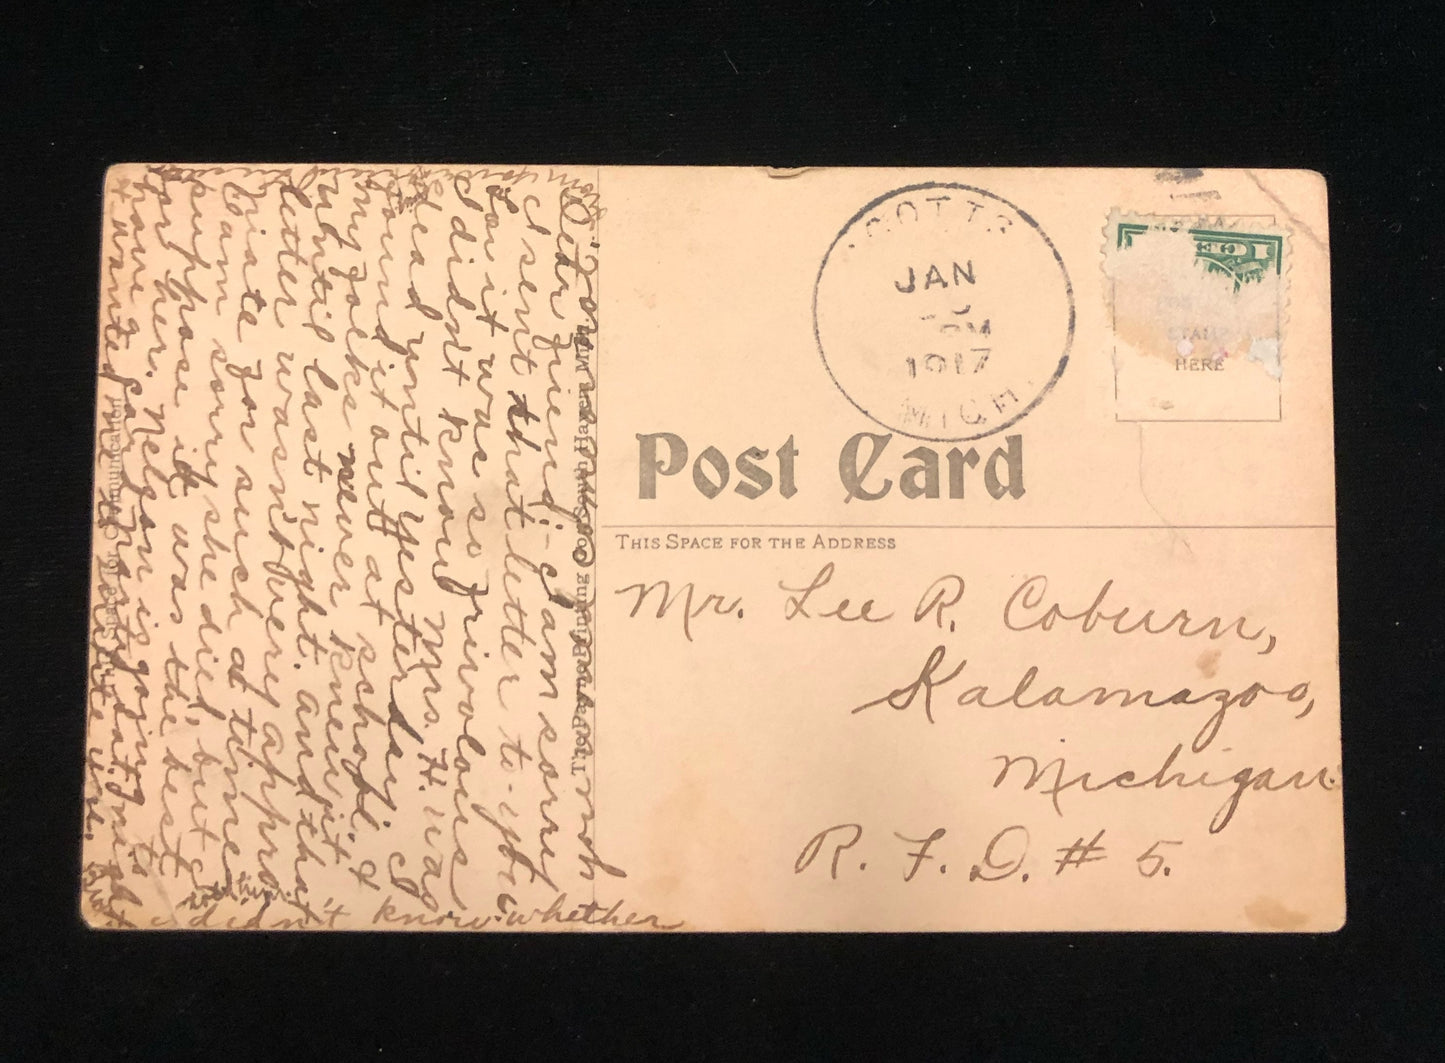 Dear friend:- I am sorry
I sent that letter to you
for it was so frivolous
I didn't know Mrs. H. was
dead until yesterday I
found it out at school. &
my folks never knew it
until last night. and that
letter wasn't very appro
priate for such a time
I am sorry she died but I
suppose it was the best
for her. Nelson is going to
have
& wanted me to write
didn't know whether
Space for Communication
The Printing Co. South Haven, Mich.
SCOTTS
JAN
PM
1917
MICH.
STAMP
HERE
Post Card
THIS SPACE FOR THE ADDRESS
Mr. Lee R. Coburn,
Kalamazoo,
Michigan.
R. F. D. # 5.